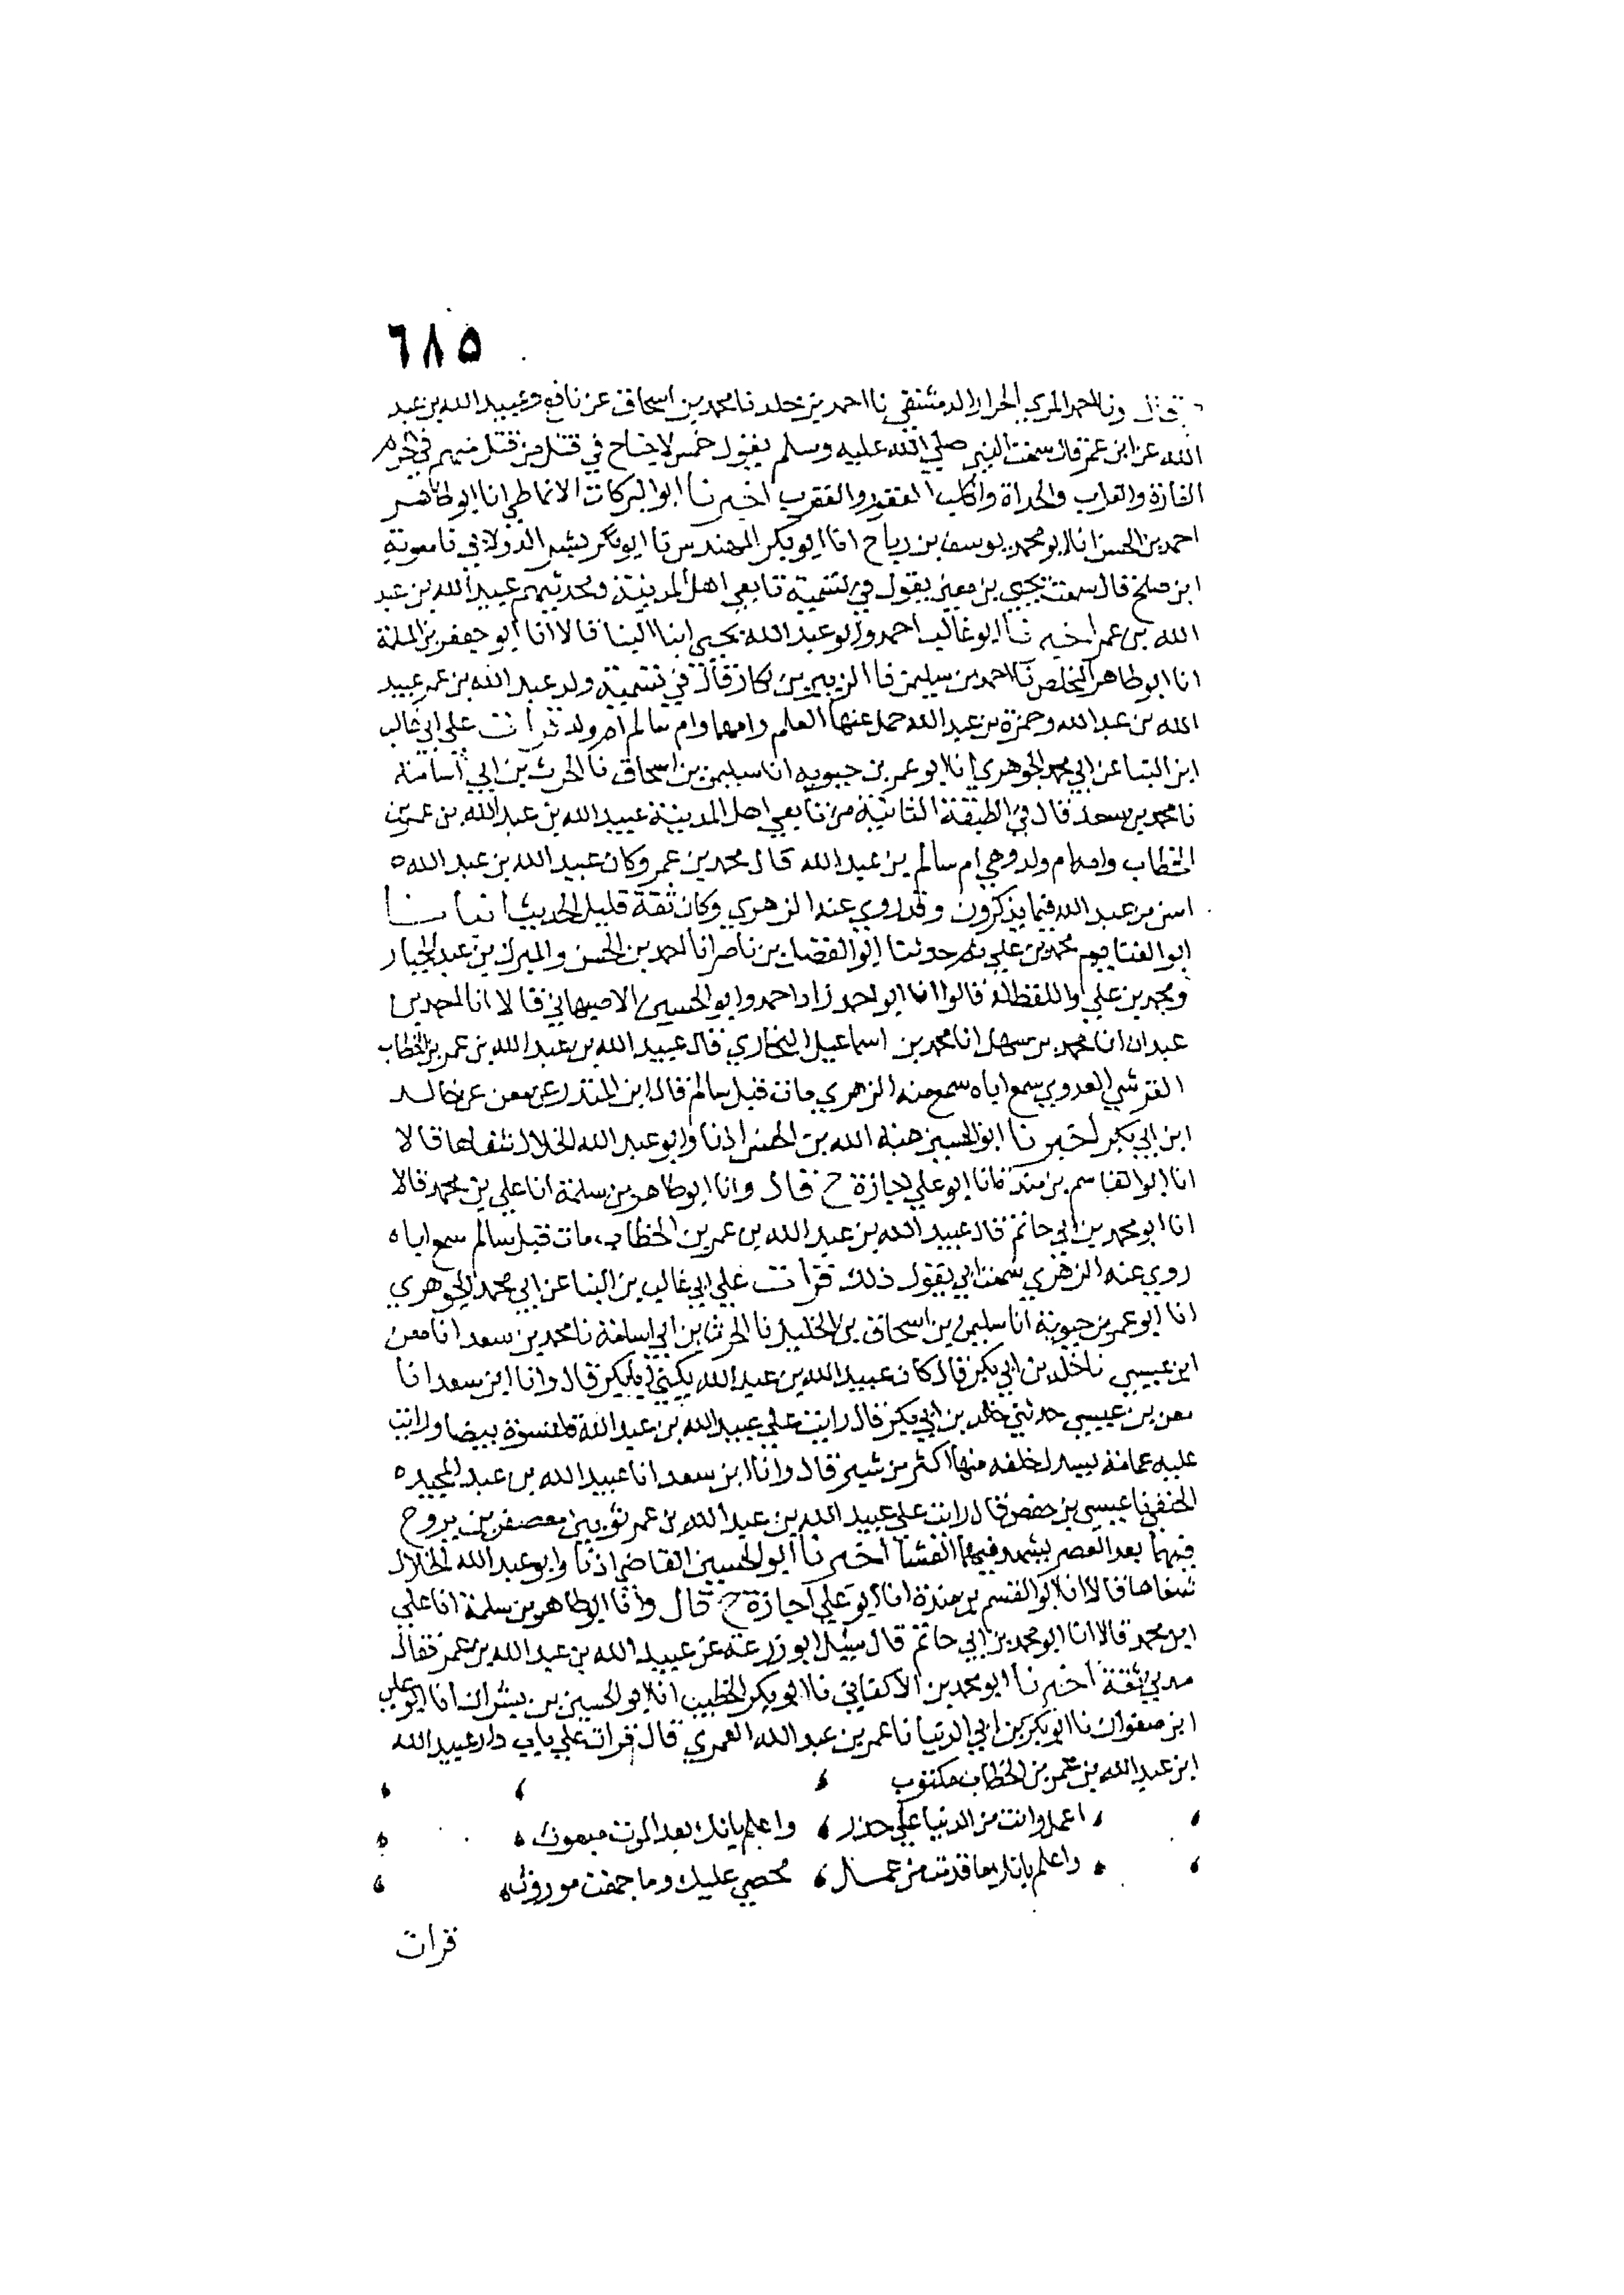 ٦٨٥
قال ونا احمد المري الخراز الدمشقي نا احمد بن خلد نا محمد بن اسحاق عن نافع وعبيد الله بن عبد
الله عن ابن عمر قال سمعت النبي صلي الله عليه وسلم يقول خمس لا جناح في قتل من قتل منهم في الحرم
الفارة والغراب والحداة والكلب العقور والعقرب اخبرنا ابو البركات الانماطي انا ابو طاهر
احمد بن الحسن انا ابو محمد يوسف بن رباح انا ابو بكر المهندس نا ابو بكر بشر الدولابي نا معوية
ابن صلح قال سمعت يحيي بن معين يقول في تسمية تابعي اهل المدينة ومحدثيهم عبيد الله بن عبد
الله بن عمر اخبرنا ابو غالب احمد وابو عبد الله يحيي ابنا البنا قالا انا ابو جعفر بن المسلمة
انا ابو طاهر المخلص نا احمد بن سليمن نا الزبير بن بكار قال في تسمية ولد عبد الله بن عمر عبيد
الله بن عبد الله وحمزة بن عبد الله حمل عنهما العلم وامهما وام سالم ام ولد قرات علي ابي غالب
ابن البنا عن ابي محمد الجوهري انا ابو عمر بن حيويه انا سليمن بن اسحاق نا الحرث بن ابي اسامة
نا محمد بن سعد قال في الطبقة الثانية من تابعي اهل المدينة عبيد الله بن عبد الله بن عمر بن
الخطاب وامه ام ولد وهي ام سالم بن عبد الله قال محمد بن عمر وكان عبيد الله بن عبد الله
اسن من عبد الله فيما يذكرون وقد روي عنه الزهري وكان ثقة قليل الحديث انبانا
ابو الغنايم محمد بن علي ثم حدثنا ابو الفضل بن ناصر انا احمد بن الحسن والمبرك بن عبد الجبار
ومحمد بن علي واللفظ له قالوا انا ابو احمد زاد احمد وابو الحسين الاصبهاني قالا انا احمد بن
عبدان انا محمد بن سهل انا محمد بن اسماعيل البخاري قال عبيد الله بن عبد الله بن عمر بن الخطاب
القرشي العدوي سمع اباه سمع منه الزهري مات قبل سالم قال ابن المنذر عن معن عن خالد
ابن ابي بكر اخبرنا ابو الحسين هبة الله بن الحسن اذنا وابو عبد الله الخلال شفاها قالا
انا ابو القاسم بن منده انا ابو علي اجازة ح قال وانا ابو طاهر بن سلمة انا علي بن محمد قالا
انا ابو محمد بن ابي حاتم قال عبيد الله بن عبد الله بن عمر بن الخطاب مات قبل سالم سمع اباه
روي عنه الزهري سمعت ابي يقول ذلك قرات علي ابي غالب بن البنا عن ابي محمد الجوهري
انا ابو عمر بن حيوية انا سليمن بن اسحاق بن الخليل نا الحرث بن ابي اسامة نا محمد بن سعد انا معن
ابن عيسي نا خلد بن ابي بكر قال كان عبيد الله بن عبد الله يكني ابا بكر قال وانا ابن سعد انا
معن بن عيسي حدثني خلد بن ابي بكر قال رايت علي عبيد الله بن عبد الله قلنسوة بيضا ورايت
عليه عمامة يسدل خلفه منها اكثر من شبر قال وانا ابن سعد انا عبيد الله بن عبد المجيد
الحنفي نا عيسي بن حفص قال رايت علي عبيد الله بن عبد الله بن عمر ثوبين معصفرين يروح
فيهما بعد العصر يشهد فيهما العشا اخبرنا ابو الحسين القاضي اذنا وابو عبد الله الخلال
شفاها قالا انا ابو القسم بن مندة انا ابو علي اجازة ح قال وانا ابو طاهر بن سلمة انا علي
ابن محمد قالا انا ابو محمد بن ابي حاتم قال سئل ابو زرعة عن عبيد الله بن عبد الله بن عمر فقال
مديني ثقة اخبرنا ابو محمد بن الاكفاني نا ابو بكر الخطيب انا ابو الحسين بن بشران انا ابو علي
ابن صفوان نا ابو بكر بن ابي الدنيا نا عمر بن عبد الله العمري قال قرات علي باب دار عبيد الله
ابن عبد الله بن عمر بن الخطاب مكتوب
اعمل وانت من الدنيا علي حذر واعلم بانك بعد الموت مبعوث
واعلم بانك ما قدمت من عمل محصي عليك وما جمعت موروث
قرات